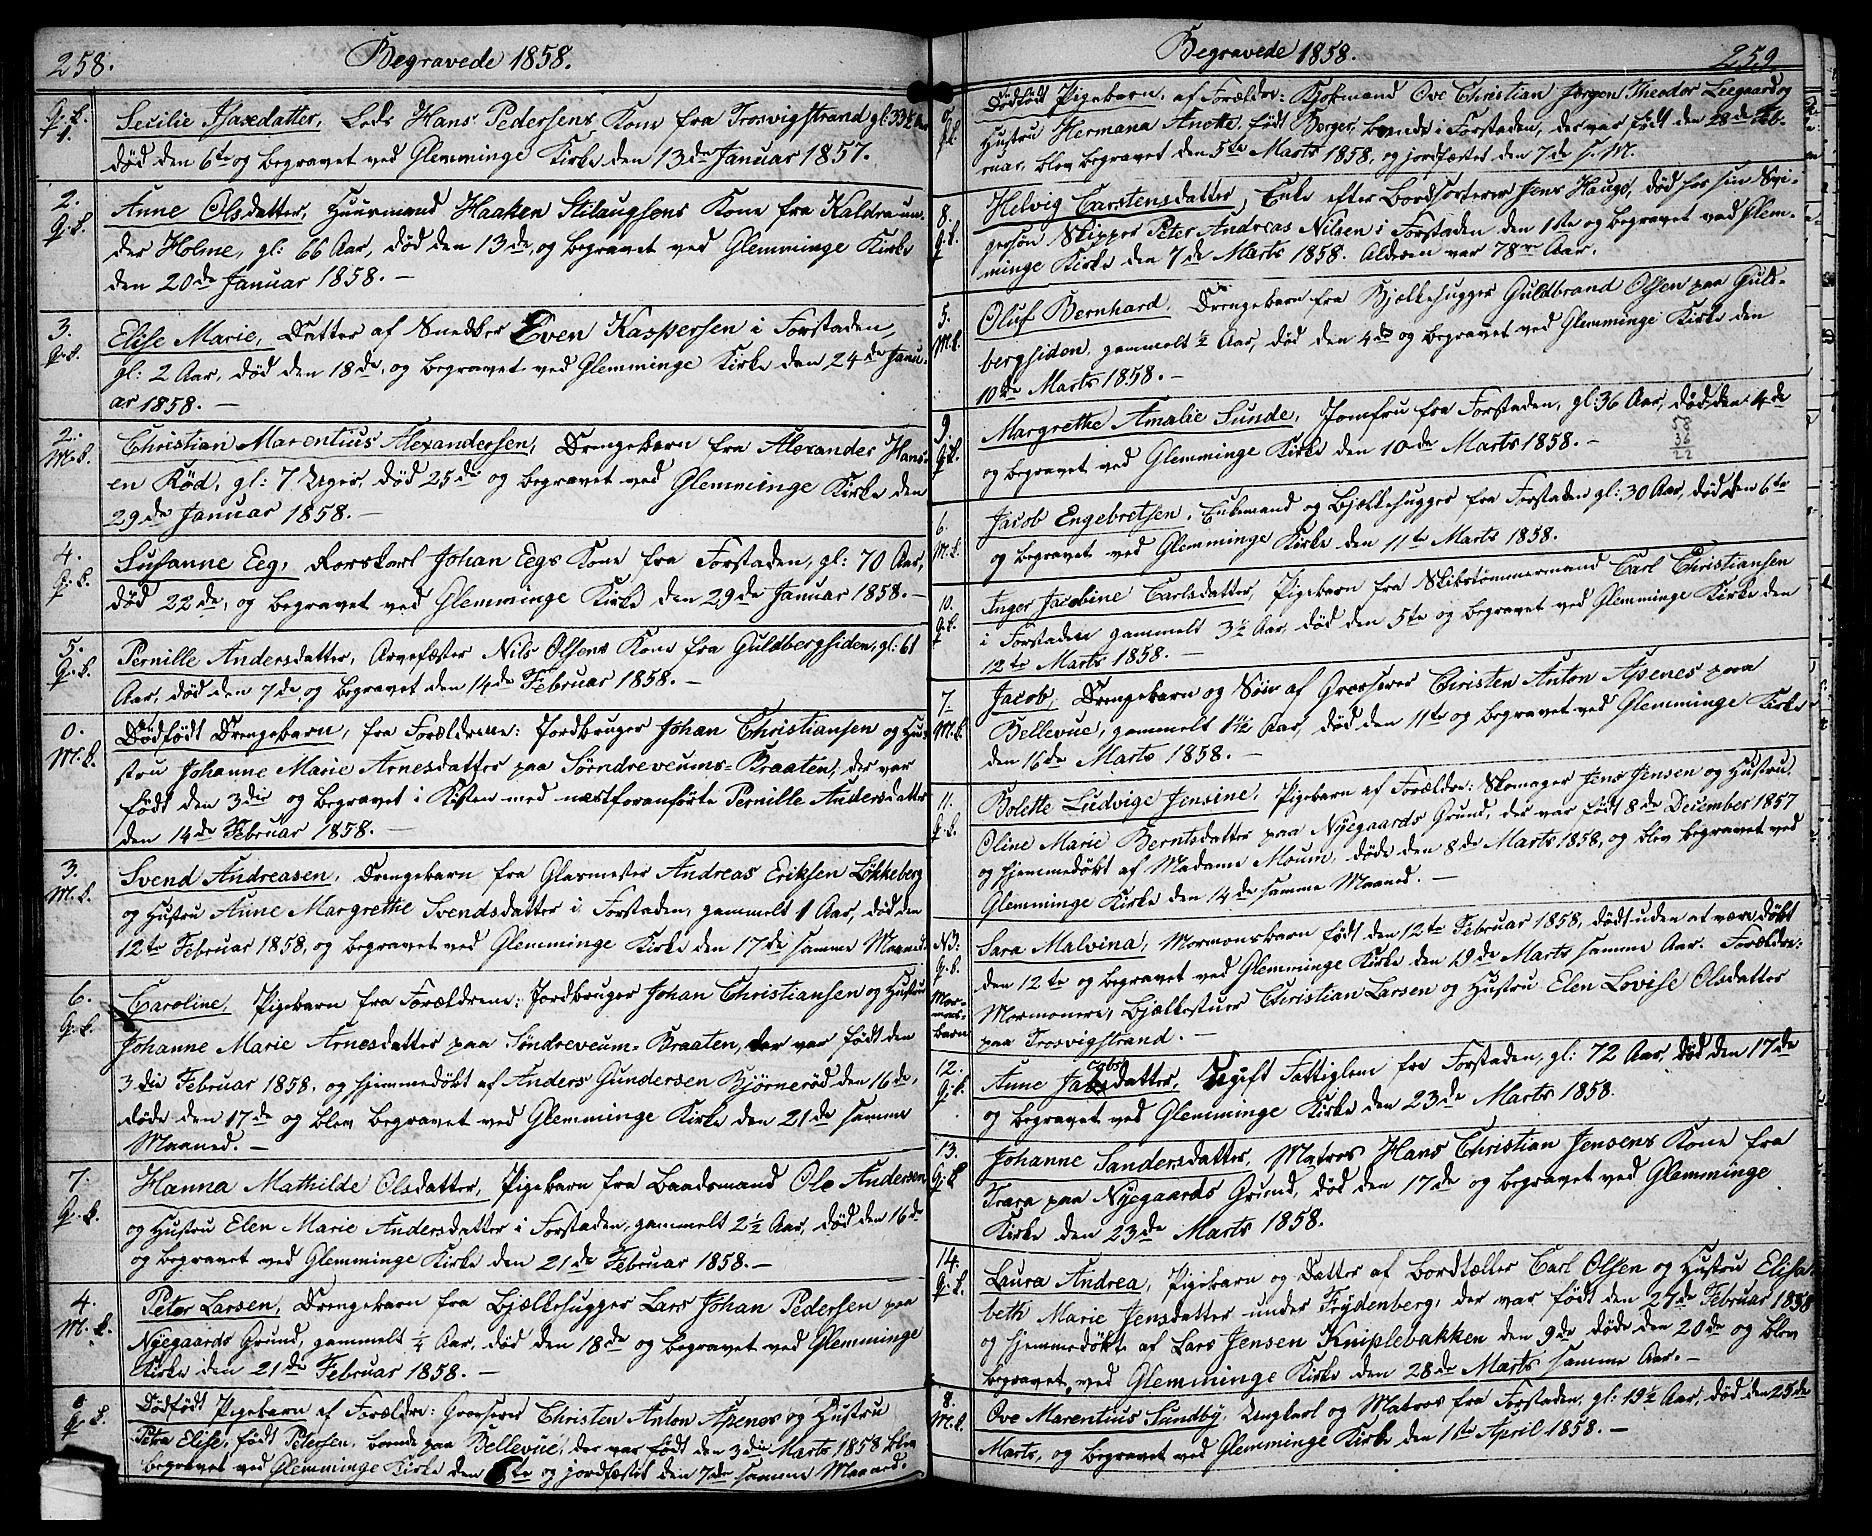 258.
Begravede 1858.
Q. k.
1.
Secilie Isaxdatter, Lods Hans Pedersens Kone fra Trosvigstrand gl: 33½ Aar
død den 6te og begravet ved Glemminge Kirke den 13de Januar 1857.
2.
Q. k.
Anne Olsdatter, Huusmand Haaken Stilaugsens Kone fra Kaldraun-
der Holme, gl: 66 Aar, død den 13de, og begravet ved Glemminge Kirke
den 20de Januar 1858. —
3.
Q. k.
Elise Marie, Datter af Snedker Even Kaspersen i Forstaden,
gl: 2 Aar, død den 18de, og begravet ved Glemminge Kirke den 24de Janu-
ar 1858. —
2.
M. k.
Christian Marentius Alexandersen, Drengebarn fra Alexander Hans-
en Rød, gl: 7 Uger, død 25de og begravet ved Glemminge Kirke den
29de Januar 1858. —
4.
Q. k.
Susanne Eeg, Rorskarl Johan Eegs Kone fra Forstaden, gl: 70 Aar,
død 22de, og begravet ved Glemminge Kirke den 29de Januar 1858. —
5.
Q. k.
Pernille Andersdatter, Arvefæster Nils Olsens Kone fra Guldbergsiden, gl: 61
Aar, død den 7de og begravet den 14de Februar 1858. —
0.
M. k.
Dødfødt Drengebarn, fra Forældrene: Jordbruger Johan Christiansen og Hu-
stru Johanne Marie Arnesdatter paa Sørndreveums-Braaten, der var
født den 3die og begravet i Kisten med næstforanførte Pernille Andersdatter
den 14de Februar 1858. —
3.
M. k.
Svend Andreasen, Drengebarn fra Glasmester Andreas Eriksen Løkkeberg
og Hustru Anne Margrethe Svendsdatter i Forstaden, gammelt 1 Aar, død den
12te Februar 1858, og begravet ved Glemminge Kirke den 17de samme Maaned.
6.
Q. k.
Caroline, Pigebarn fra Forældrene: Jordbruger Johan Christiansen og Hustru
Johanne Marie Arnesdatter paa Søndreveum-Braaten, der var født den
3die Februar 1858, og hjemmedøbt af Anders Gundersen Bjørnerød den 16de,
døde den 17de og blev begravet ved Glemminge Kirke den 21de samme
Maaned. —
7.
Q. k.
Hanna Mathilde Olsdatter, Pigebarn fra Baadsmand Ole Andersen
og Hustru Elen Marie Andersdatter i Forstaden, gammelt 2½ Aar, død den 16de
og begravet ved Glemminge Kirke den 21de Februar 1858. —
4.
M. k.
Peter Larsen, Drengebarn fra Bjælkehugger Lars Johan Pedersen paa
Nyegaards Grund, gammelt ¼ Aar, død den 18de og begravet ved Glemminge
Kirke den 21de Februar 1858. —
0
Q. k.
Dødfødt Pigebarn af Forældre: Grosserer Christen Anton Apenes og Hustru
Petra Elise, født Petersen, boende paa Bellevue, der var født den 3die Marts 1858 blev
begravet ved Glemminge Kirke den 6te og jordfæstet den 7de samme Maaned.
Begravede 1858.
259
0.
Q. k.
Dødfødt Pigebarn, af Forældre: Kjøbmand Ove Christian Jørgen Theodor Leegaard og
Hustru Hermana Anette, født Berger, boende i Forstaden, der var født den 28de Feb-
ruar, blev begravet den 5te Marts 1858, og jordfæstet den 7de s. M.
8.
Q. k.
Helvig Carstensdatter, Enke efter Bordsorterer Jens Hauge, død hos sin Svi-
gersøn Skipper Peter Andreas Nilsen i Forstaden den 1ste og begravet ved Glem-
minge Kirke den 7de Marts 1858. Alderen var 78 Aar.
5.
M. k.
Oluf Bernhard, Drengebarn fra Bjælkehugger Guldbrand Olsen paa Guld-
bergsiden, gammelt ½ Aar, død den 4de og begravet ved Glemminge Kirke den
10de Marts 1858. —
9.
Q. k.
Margrethe Amalie Sunde, Jomfru fra Forstaden, gl: 36 Aar, død den 4de
og begravet ved Glemminge Kirke den 10de Marts 1858. —
58
36
22
6.
M. k.
Jacob Engebretsen, Enkemand og Bjælkehugger fra Forstaden gl: 30 Aar, død den 6te
og begravet ved Glemminge Kirke den 11te Marts 1858.
10.
Q. k.
Inger Jacobine Carlsdatter, Pigebarn fra Skibstømmermand Carl Christiansen
i Forstaden gammelt 3½ Aar, død den 5te og begravet ved Glemminge Kirke den
12te Marts 1858. —
7
M. k.
Jacob, Drengebarn og Søn af Grosserer Christen Anton Apenes paa
Bellevue, gammelt 1½ Aar, død den 11te og begravet ved Glemminge Kirke
den 16de Marts 1858. —
11.
Q. k.
Bolette Ludvige Jensine, Pigebarn af Forældre: Skomager Jens Jensen og Hustru
Oline Marie Berntsdatter paa Nyegaards Grund, der var født 8de December 1857
og hjemmedøbt af Madame Moum, døde den 8de Marts 1858, og blev begravet ved
Glemminge Kirke den 14de samme Maaned. —
N3:
Q. k.
Mor-
mons-
barn
Sara Malvina, Mormonsbarn født den 12te Februar 1858, død uden at være døbt
den 12te og begravet ved Glemminge Kirke den 19de Marts samme Aar. Forældre:
Mormoneri, Bjælkestuer Christian Larsen og Hustru Elen Lovise Olsdatter
paa Trosvigstrand. —
12.
Q. k.
Anne Jacobsdatter, Ugift Fattiglem fra Forstaden, gl: 72 Aar, død den 17de
og begravet ved Glemminge Kirke den 23de Marts 1858.
13.
Q. k
Johanne Sandersdatter, Matros Hans Christian Jensens Kone fra
Trara paa Nyegaards Grund, død den 17de og begravet ved Glemminge
Kirke den 23de Marts 1858.
14.
Q. k.
Laura Andrea, Pigebarn og Datter af Bordtæller Carl Olsen og Hustru Elisa-
beth Marie Jensdatter under Frydenberg, der var født den 27de Februar 1858
og hjemmedøbt af Lars Jensen Kniplebakken den 9de døde den 20de og blev
begravet ved Glemminge Kirke den 28de Marts samme Aar. —
8.
M. k.
Ove Marentius Sundby, Ungkarl og Matros fra Forstaden, gl: 19½ Aar, død den 25de
Marts, og begravet ved Glemminge Kirke den 1ste April 1858. —